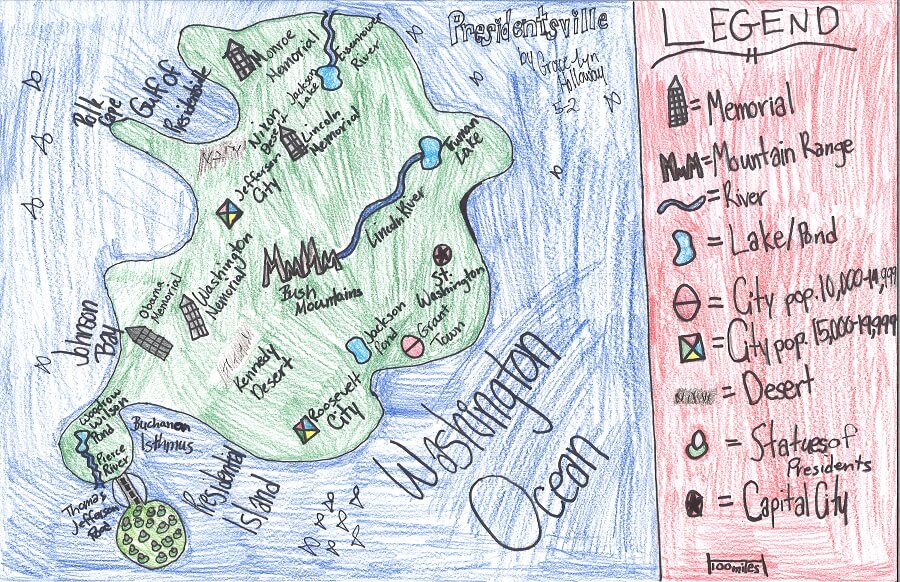 Presidentsville
by Grace-Lyn
Holloway
5-2
Monroe
Memorial
Eisenhower
River
Jackson
Lake
Gulf of
Presidentville
Polk
Cape
Nixon
Desert
Lincoln
Memorial
Truman
Lake
Jefferson
City
Lincoln River
Washington
Memorial
Bush
Mountains
St.
Washington
Obama
Memorial
Johnson
Bay
Jackson
Pond
Grant
Town
Kennedy
Desert
Roosevelt
City
Woodrow
Wilson
Pond
Buchanan
Isthmus
Pierce
River
Thomas
Jefferson
Presidential
Island
Washington
Ocean
LEGEND
= Memorial
= Mountain Range
= River
= Lake/Pond
= City pop. 10,000-14,999
= City pop. 15,000-19,999
= Desert
= Statues of
Presidents
= Capital City
100 miles